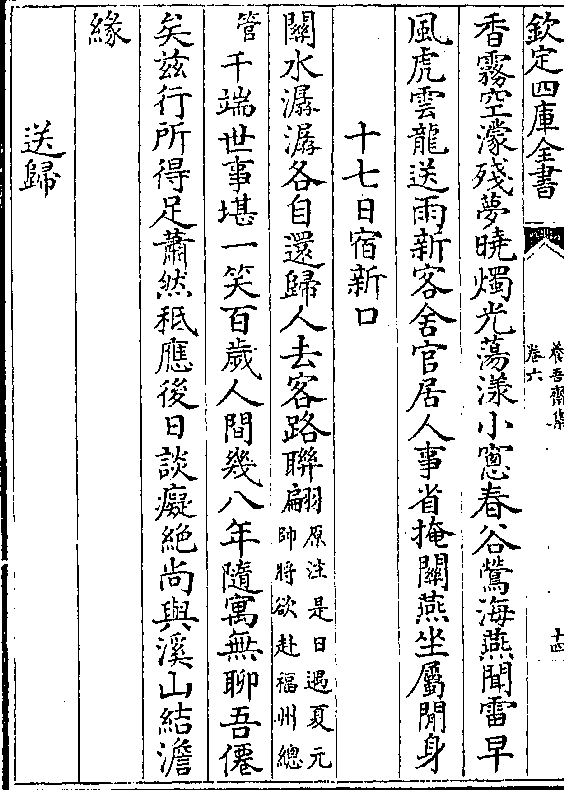 欽定四庫全書
養吾齋集
卷六
十四
香霧空濛殘夢曉燭光蕩漾小窻春谷鶯海燕聞雷早
風虎雲龍送雨新客舍官居人事省掩關燕坐屬閒身
十七日宿新口
關水潺潺各自還歸人去客路聯翩原注是日遇夏元帥將欲赴福州總
管千端世事堪一笑百歲人間幾八年隨寓無聊吾僊
矣兹行所得足蕭然秪應後日談癡絶尚與溪山結澹
緣
送歸